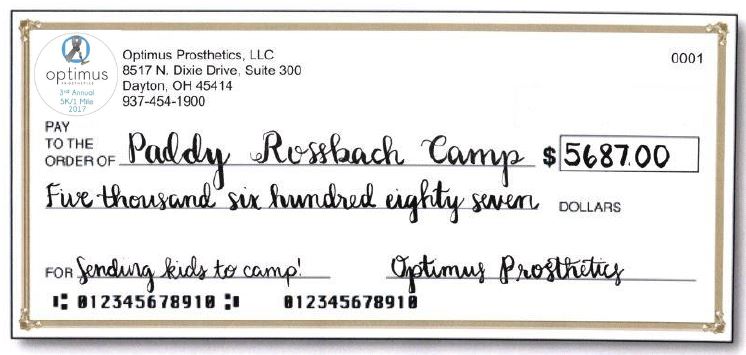 optimus
PROSTHETICS
3rd Annual
5K/1 Mile
2017
Optimus Prosthetics, LLC
8517 N. Dixie Drive, Suite 300
Dayton, OH 45414
937-454-1900
0001
PAY
TO THE
ORDER OF Paddy Rossbach Camp $ 5687.00
Five thousand six hundred eighty seven DOLLARS
FOR Sending kids to camp! Optimus Prosthetics
⑆ 012345678910 ⑆ 012345678910